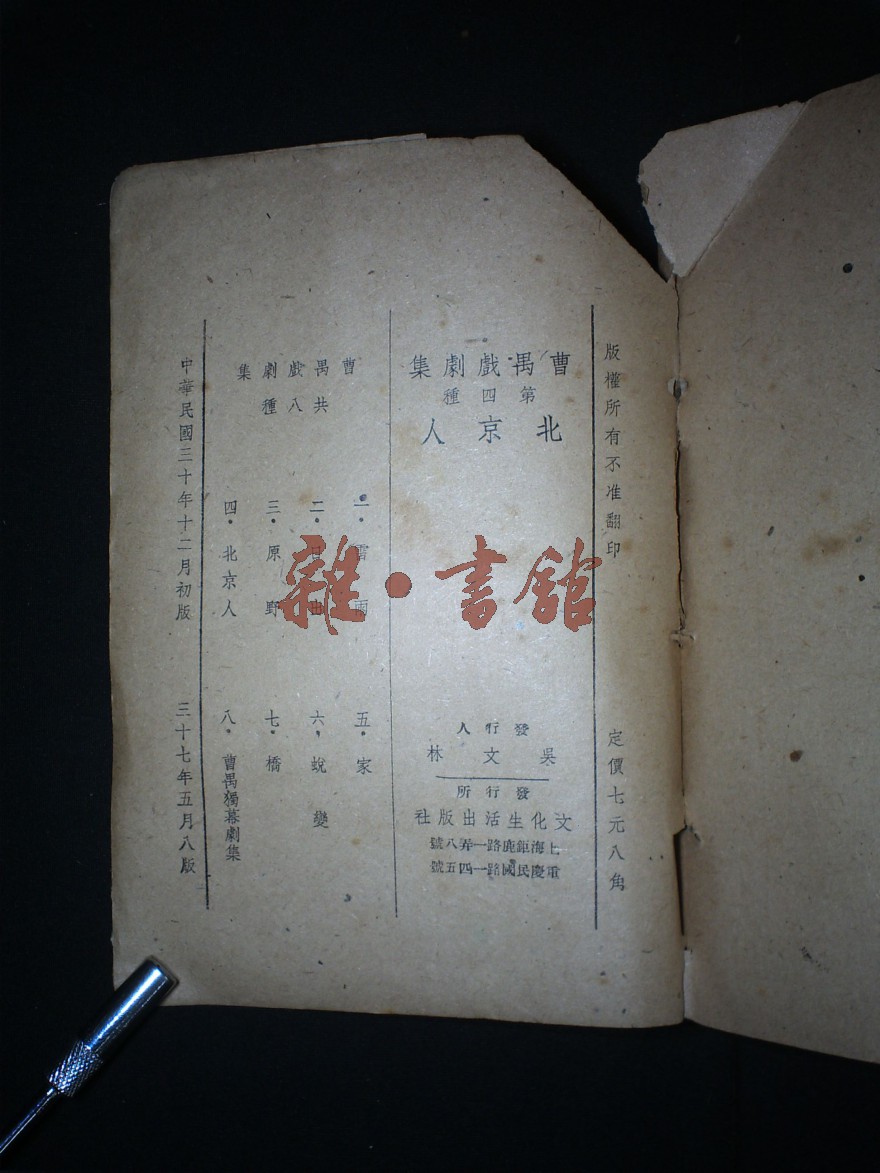 版權所有不准翻印
定價七元八角
曹禺戲劇集
第四種
北京人
發行人
吳文林
發行所
文化生活出版社
上海鉅鹿路一弄八號
重慶民國路一四五號
曹禺戲劇集
共八種
一·雷雨
二·日出
三·原野
四·北京人
五·家
六·蛻變
七·橋
八·曹禺獨幕劇集
中華民國三十年十二月初版
三十七年五月八版
雜·書館